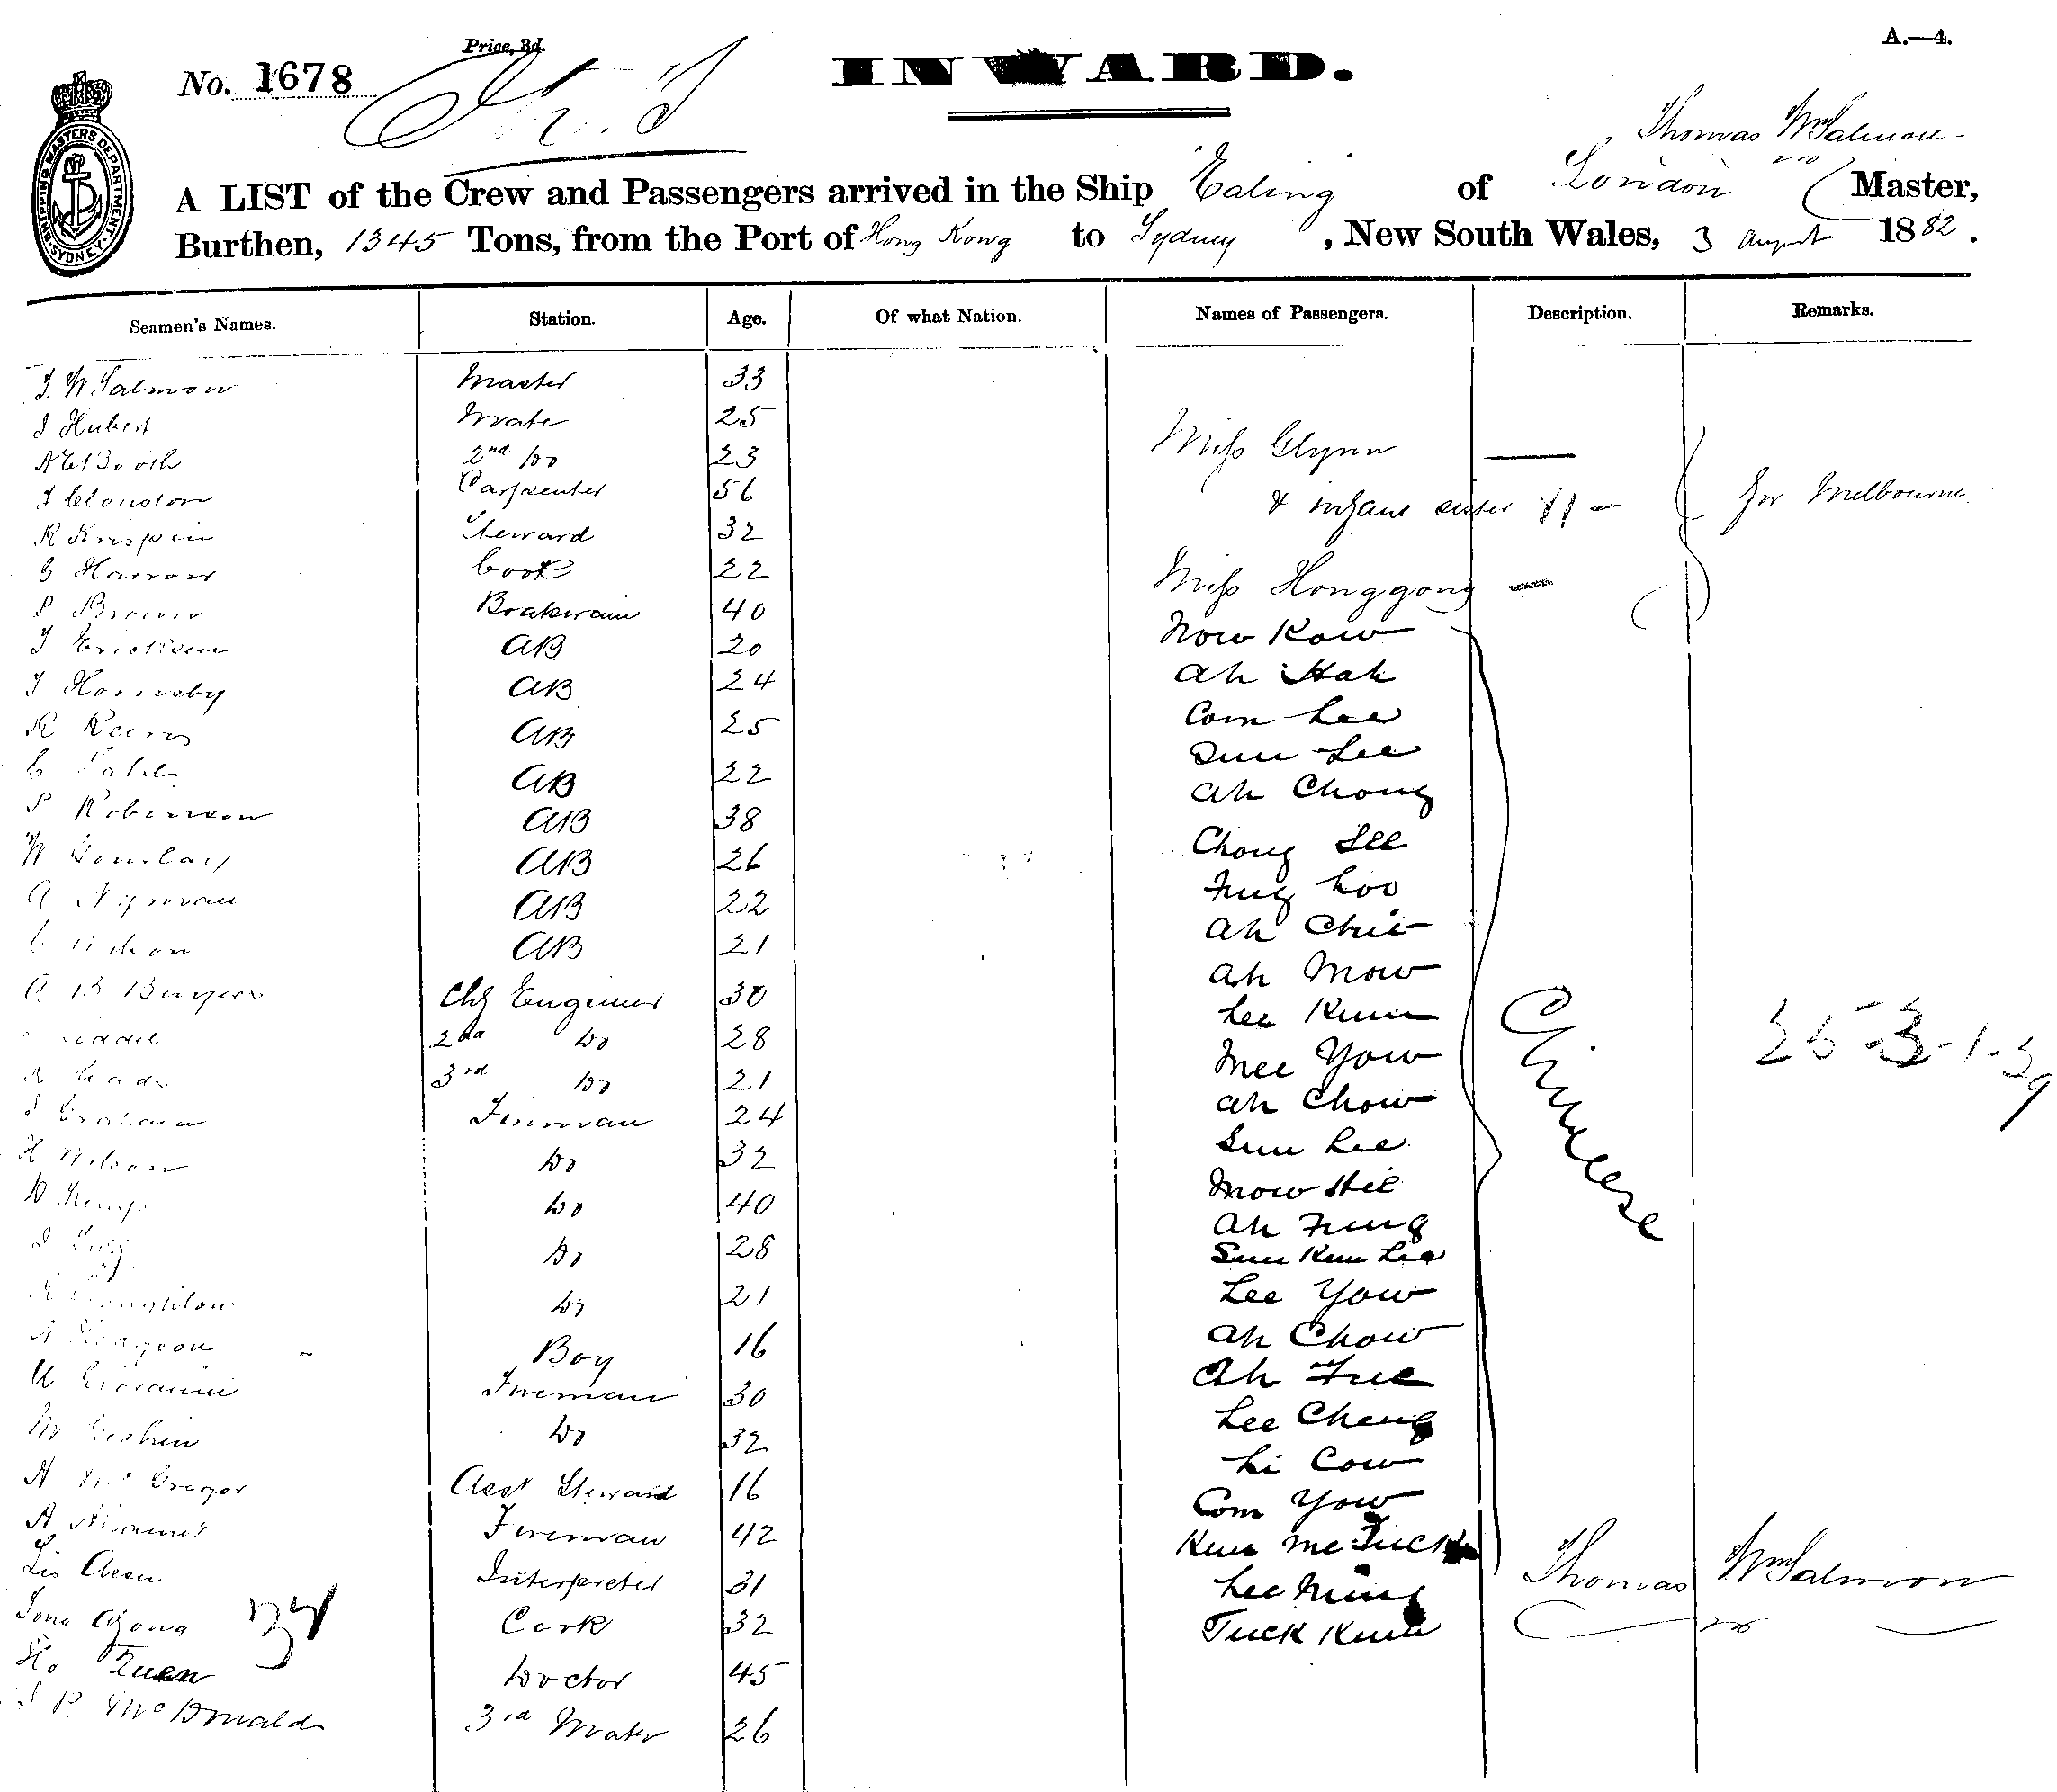 A.—4.
Price, 3d.
No. 1678
INWARD.
Thomas Wm Salmon
A LIST of the Crew and Passengers arrived in the Ship Ealing of London Master,
Burthen, 1345 Tons, from the Port of Hong Kong to Sydney, New South Wales, 3 August 1882.
SHIPPING MASTERS DEPARTMENT SYDNEY
Seamen's Names. Station. Age. Of what Nation. Names of Passengers. Description. Remarks.
T. W Salmon Master 33
J Hubert Mate 25
Miss Glynn —
Booth 2nd Do 23
J Clouston Carpenter 56
& infant sister — for Melbourne
R Krispin Steward 32
Harrow Cook 22
Miss Honggong —
P Brown 40
Now Kow
J Ericksen AB 20
Ah Hah
J Hornsby AB 24
Com Lee
R AB 25
Sun Lee
C AB 22
Ah Chong
P Robinson AB 38
Chong See
W Gourlay AB 26
Fug Loo
A Nyman AB 22
Ah Chie
AB 21
Ah Mow
A B Buyers Chf Engineer 30
Lee Kum
2nd Do 28
Mee Yow
Chinese
3rd Do 21
Ah Chow
Graham Fireman 24
Sun Lee
H Wilson Do 32
Mow Hie
D Kemp Do 40
Ah Fung
Sun Kum Lee
Do 28
Lee Yow
Do 21
Ah Chow
Boy 16
Ah Fue
Giovanni Fireman 30
Lee Cheng
M Do 32
Li Cow
A McGregor Asst Steward 16
Com Yow
A Fireman 42
Kum Me Tuck
Thomas Wm Salmon
Interpreter 31
Lee Ming
Tong Chong Cook 32
Tuck Kum
Ho Doctor 45
J P McDonald 3rd Mate 26